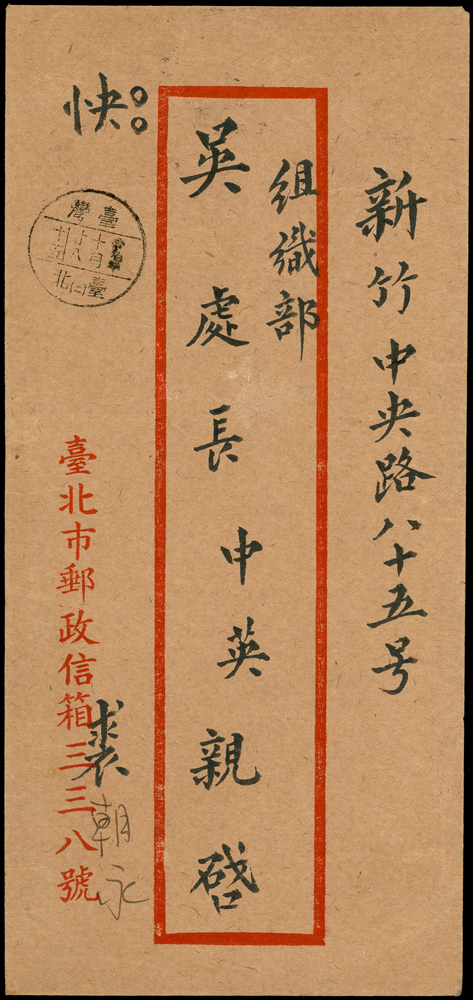 新竹中央路八十五号
組織部
吳處長中英親啓
快
臺灣
十月
廿八
臺北
臺北市郵政信箱三三八號
裘
朝永